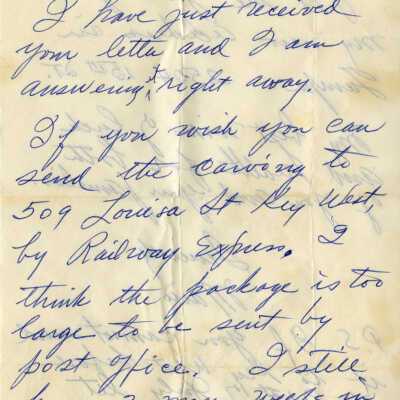 I have just received
your letter and I am
answering it right away.
If you wish you can
send the carving to
509 Louisa St Key West,
by Railway Express. I
think the package is too
large to be sent by
post office. I still